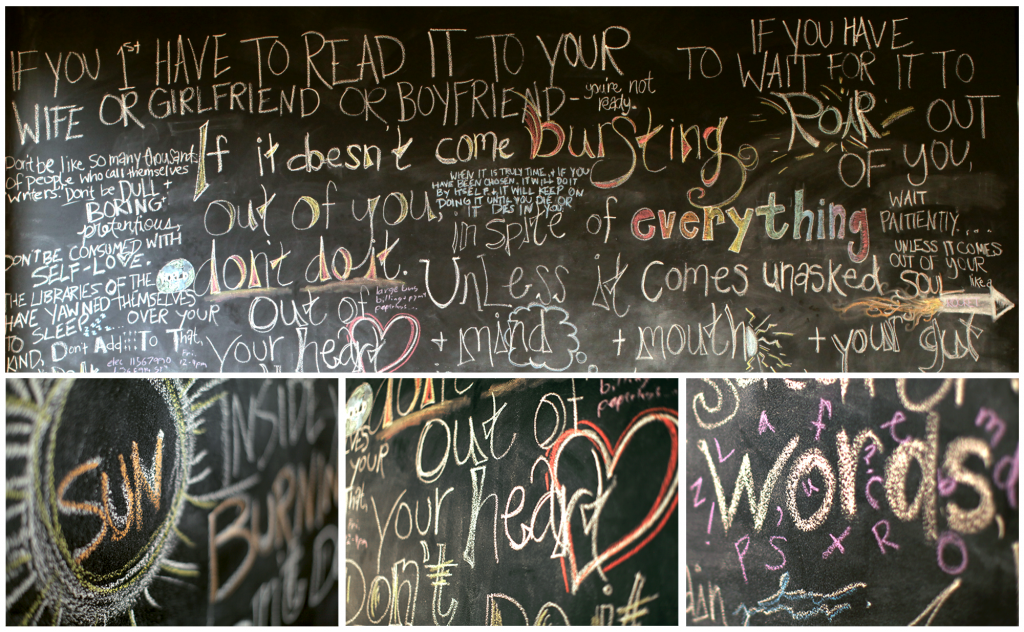 IF YOU 1st HAVE TO READ IT TO YOUR
WIFE OR GIRLFRIEND OR BOYFRIEND-
you're not
ready.
IF YOU HAVE
TO WAIT FOR IT TO
ROAR OUT
OF YOU,
WAIT
PAITIENTLY....
UNLESS IT COMES
OUT OF YOUR
SOUL
like a
Don't be like so many thousands
of people who call themselves
writers. Don't be DULL +
BORING +
pretentious,
DON'T BE CONSUMED WITH
SELF-LOVE.
THE LIBRARIES OF THE
HAVE YAWNED THEMSELVES
TO SLEEP zzzz... OVER YOUR
KIND. Don't Add To That.
If it doesn't come bursting
out of you,
WHEN IT IS TRULY TIME, + IF YOU
HAVE BEEN CHOSEN, IT WILL DO IT
BY ITSELF + IT WILL KEEP ON
DOING IT UNTIL YOU DIE OR
IT DIES IN YOU.
in spite of everything
don't do it.
Unless it comes unasked
out of
your heart + mind + mouth + your gut
SUN
INSIDE
BURNIN
out of
your heart
Don't
words,
L a f e m
Z ! u ? C b d
P S x R O